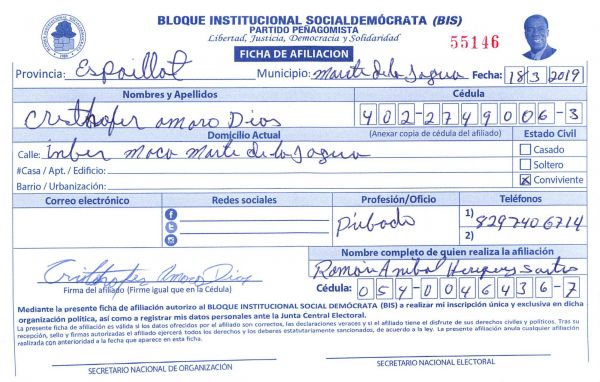 BLOQUE INSTITUCIONAL SOCIALDEMÓCRATA (BIS)
PARTIDO PEÑAGOMISTA
Libertad, Justicia, Democracia y Solidaridad
FICHA DE AFILIACION
55146
Provincia: Espaillat Municipio: Monte de la Jagua Fecha: 18/3/2019
Nombres y Apellidos Cédula
Cristhofer amaro Dios 402-2749006-3
Domicilio Actual (Anexar copia de cédula del afiliado) Estado Civil
Calle: Moca Monte de la Jagua
Casado
#Casa / Apt. / Edificio: Soltero
Barrio / Urbanización: X Conviviente
Correo electrónico Redes sociales Profesión/Oficio Teléfonos
1) 8297406714
2)
Nombre completo de quien realiza la afiliación
Cristhofer Amaro Dios Ramón Anibal
Firma del afiliado (Firme igual que en la Cédula) Cédula: 054-0046436-7
Mediante la presente ficha de afiliación autorizo al BLOQUE INSTITUCIONAL SOCIAL DEMÓCRATA (BIS) a realizar mi inscripción única y exclusiva en dicha
organización política, así como a registrar mis datos personales ante la Junta Central Electoral.
La presente ficha de afiliación es válida si los datos ofrecidos por el afiliado son correctos, las declaraciones veraces y si el afiliado tiene el disfrute de sus derechos civiles y políticos. Tras su
recepción, sello y firmas autorizadas el afiliado ejercerá todos los derechos y los deberes estatutariamente sancionados, de acuerdo a la ley. La presente afiliación anula cualquier afiliación
realizada con anterioridad a la fecha que aparece en esta ficha.
SECRETARIO NACIONAL DE ORGANIZACIÓN SECRETARIO NACIONAL ELECTORAL